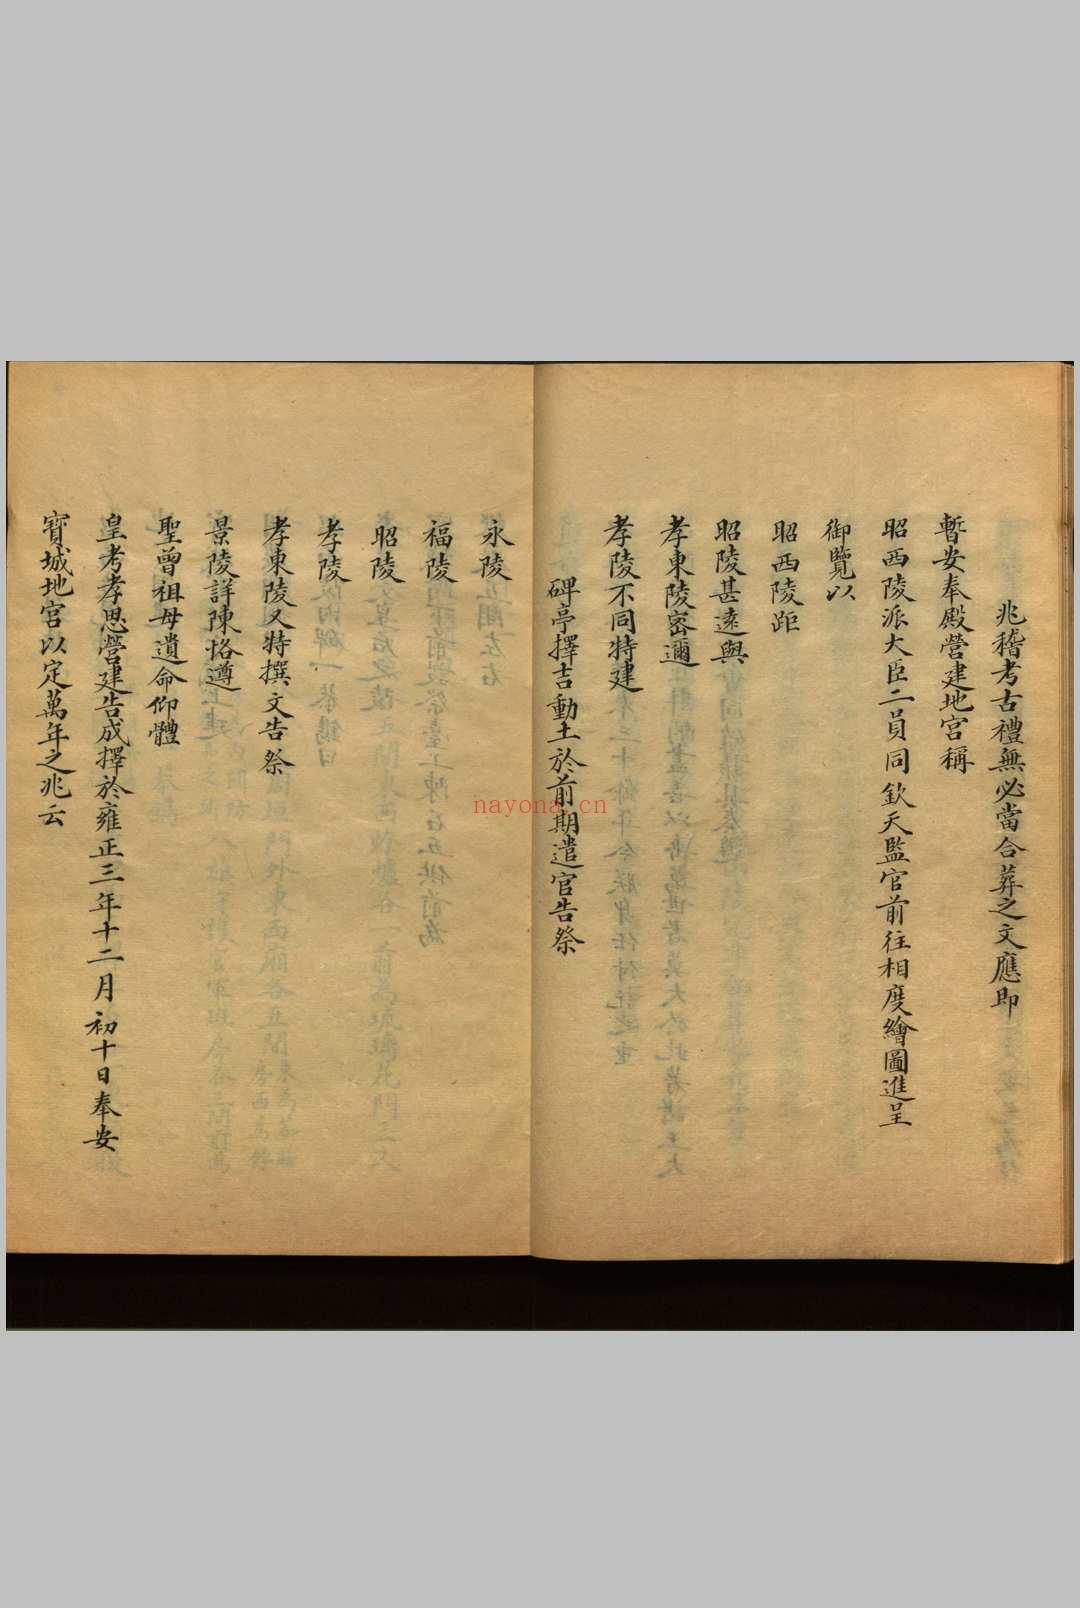 兆稽考古禮無必當合葬之文應即
暫安奉殿營建地宮稱
昭西陵派大臣二員同欽天監官前往相度繪圖進呈
御覽以
昭西陵距
昭陵甚遠與
孝東陵密邇
孝陵不同特建
碑亭擇吉動土於前期遣官告祭
永陵
福陵
昭陵
孝陵
孝東陵又特撰文告祭
景陵詳陳恪遵
聖曾祖母遺命仰體
皇考孝思營建告成擇於雍正三年十二月初十日奉安
寶城地宮以定萬年之兆云
nayona.cn